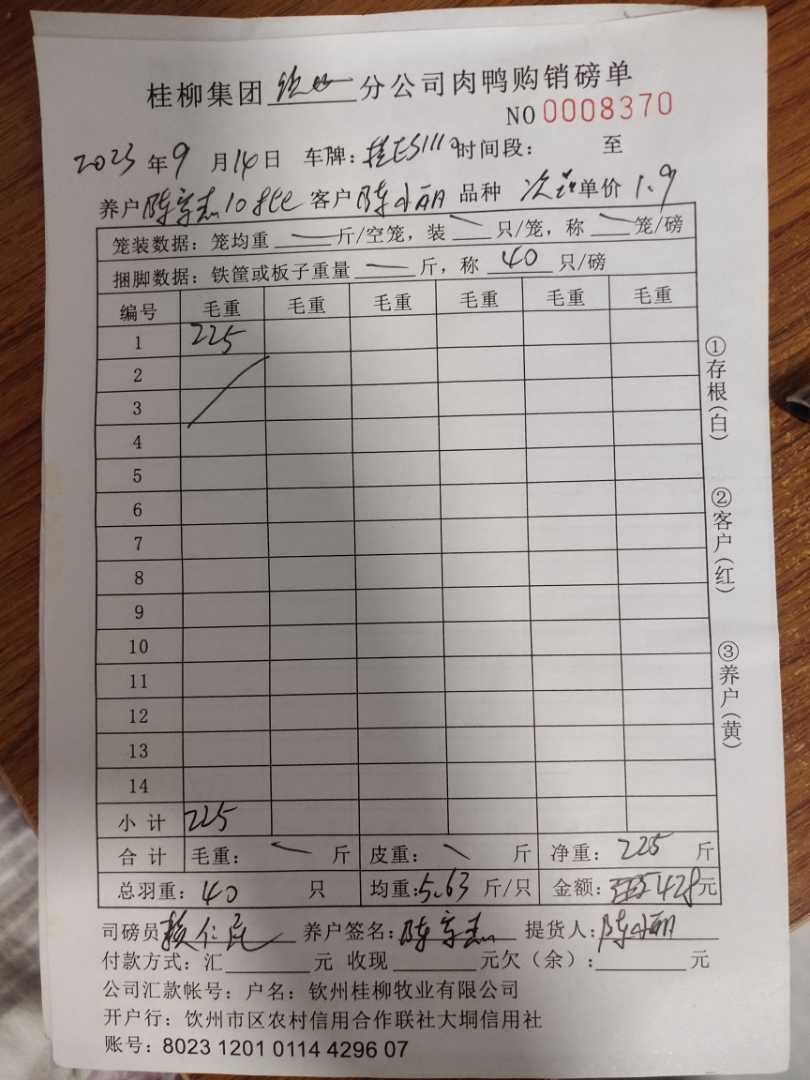 桂柳集团 钦州 分公司肉鸭购销磅单
NO 0008370
2023 年 9 月 14 日 车牌: 时间段: 至
养户 陈 客户 陈小丽 品种 次 单价 1.9
笼装数据: 笼均重 — 斤/空笼, 装 — 只/笼, 称 — 笼/磅
捆脚数据: 铁筐或板子重量 — 斤, 称 40 只/磅
编号 毛重 毛重 毛重 毛重 毛重 毛重
1 225
2
3
4
5
6
7
8
9
10
11
12
13
14
小计 225
合计 毛重: — 斤 皮重: — 斤 净重: 225 斤
总羽重: 40 只 均重: 5.63 斤/只 金额: 428 元
司磅员 养户签名: 陈 提货人: 陈小丽
付款方式: 汇 元 收现 元欠(余): 元
公司汇款帐号: 户名: 钦州桂柳牧业有限公司
开户行: 钦州市区农村信用合作联社大垌信用社
账号: 8023 1201 0114 4296 07
①存根(白)
②客户(红)
③养户(黄)